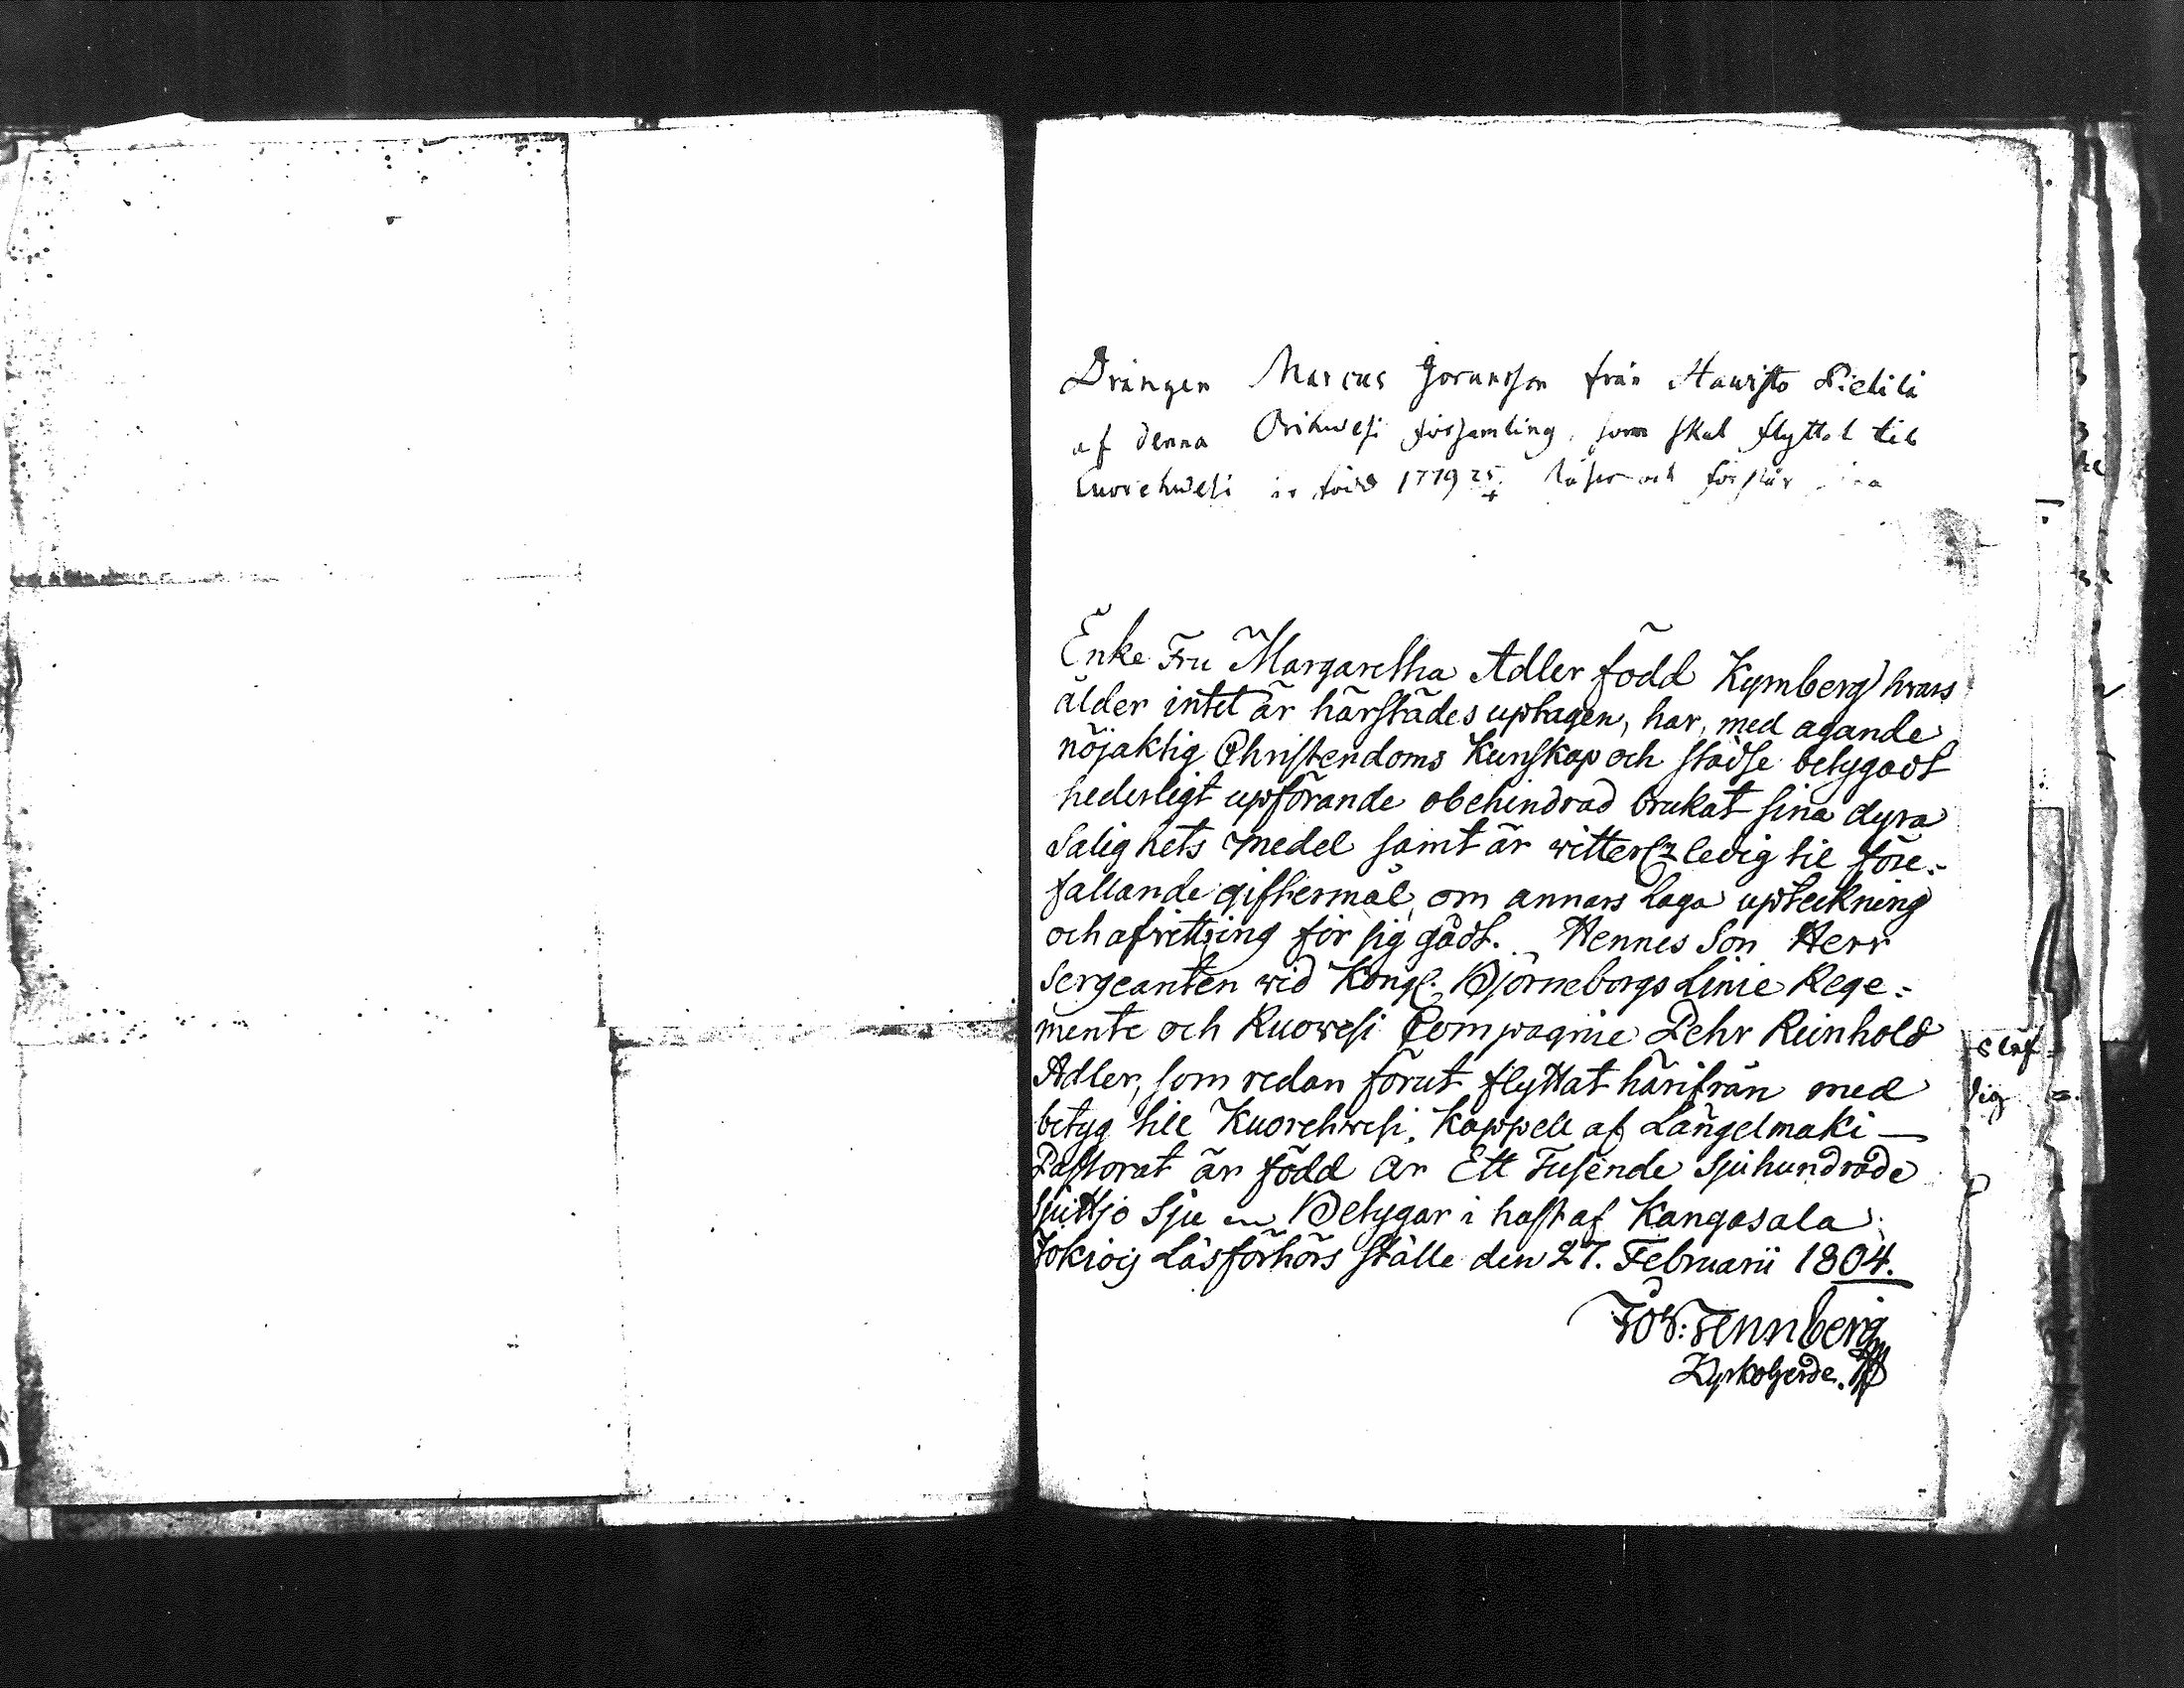 Drängen Marcus Göransson från Hawisto Pietilä
af denna Orihwesi församling, som skal flyttal til
Kuorehwesi är född 1779 25/4 läser och förstår
Enke Fru Margaretha Adler född Kymberg hvars
ålder intet är härstädes uptagen, har, med ägande
nöjaktig Christendoms Kunskap och städse betygadt
hederligt upförande obehindrad brukat sina dyra
Salighets medel samt är witterl. ledig til före-
fallande giftermål, om annars laga upteckning
och afvittring för sig gådt. Hennes Son Herr
Sergeanten wid Kongl. Björneborgs Linie Rege-
mente och Ruowesi Compagnie Pehr Reinhold
Adler, som redan förut flyttat härifrån med
betyg till Kuorehwesi, Kappell af Längelmäki
Pastorat är född år Ett Tusende Sjuhundrade
Sjuttjo Sju Betygar i hast af Kangasala
Jokiois Läsförhörs ställe den 27. Februarii 1804.
Joh: Tennberg
Kyrkoherde.